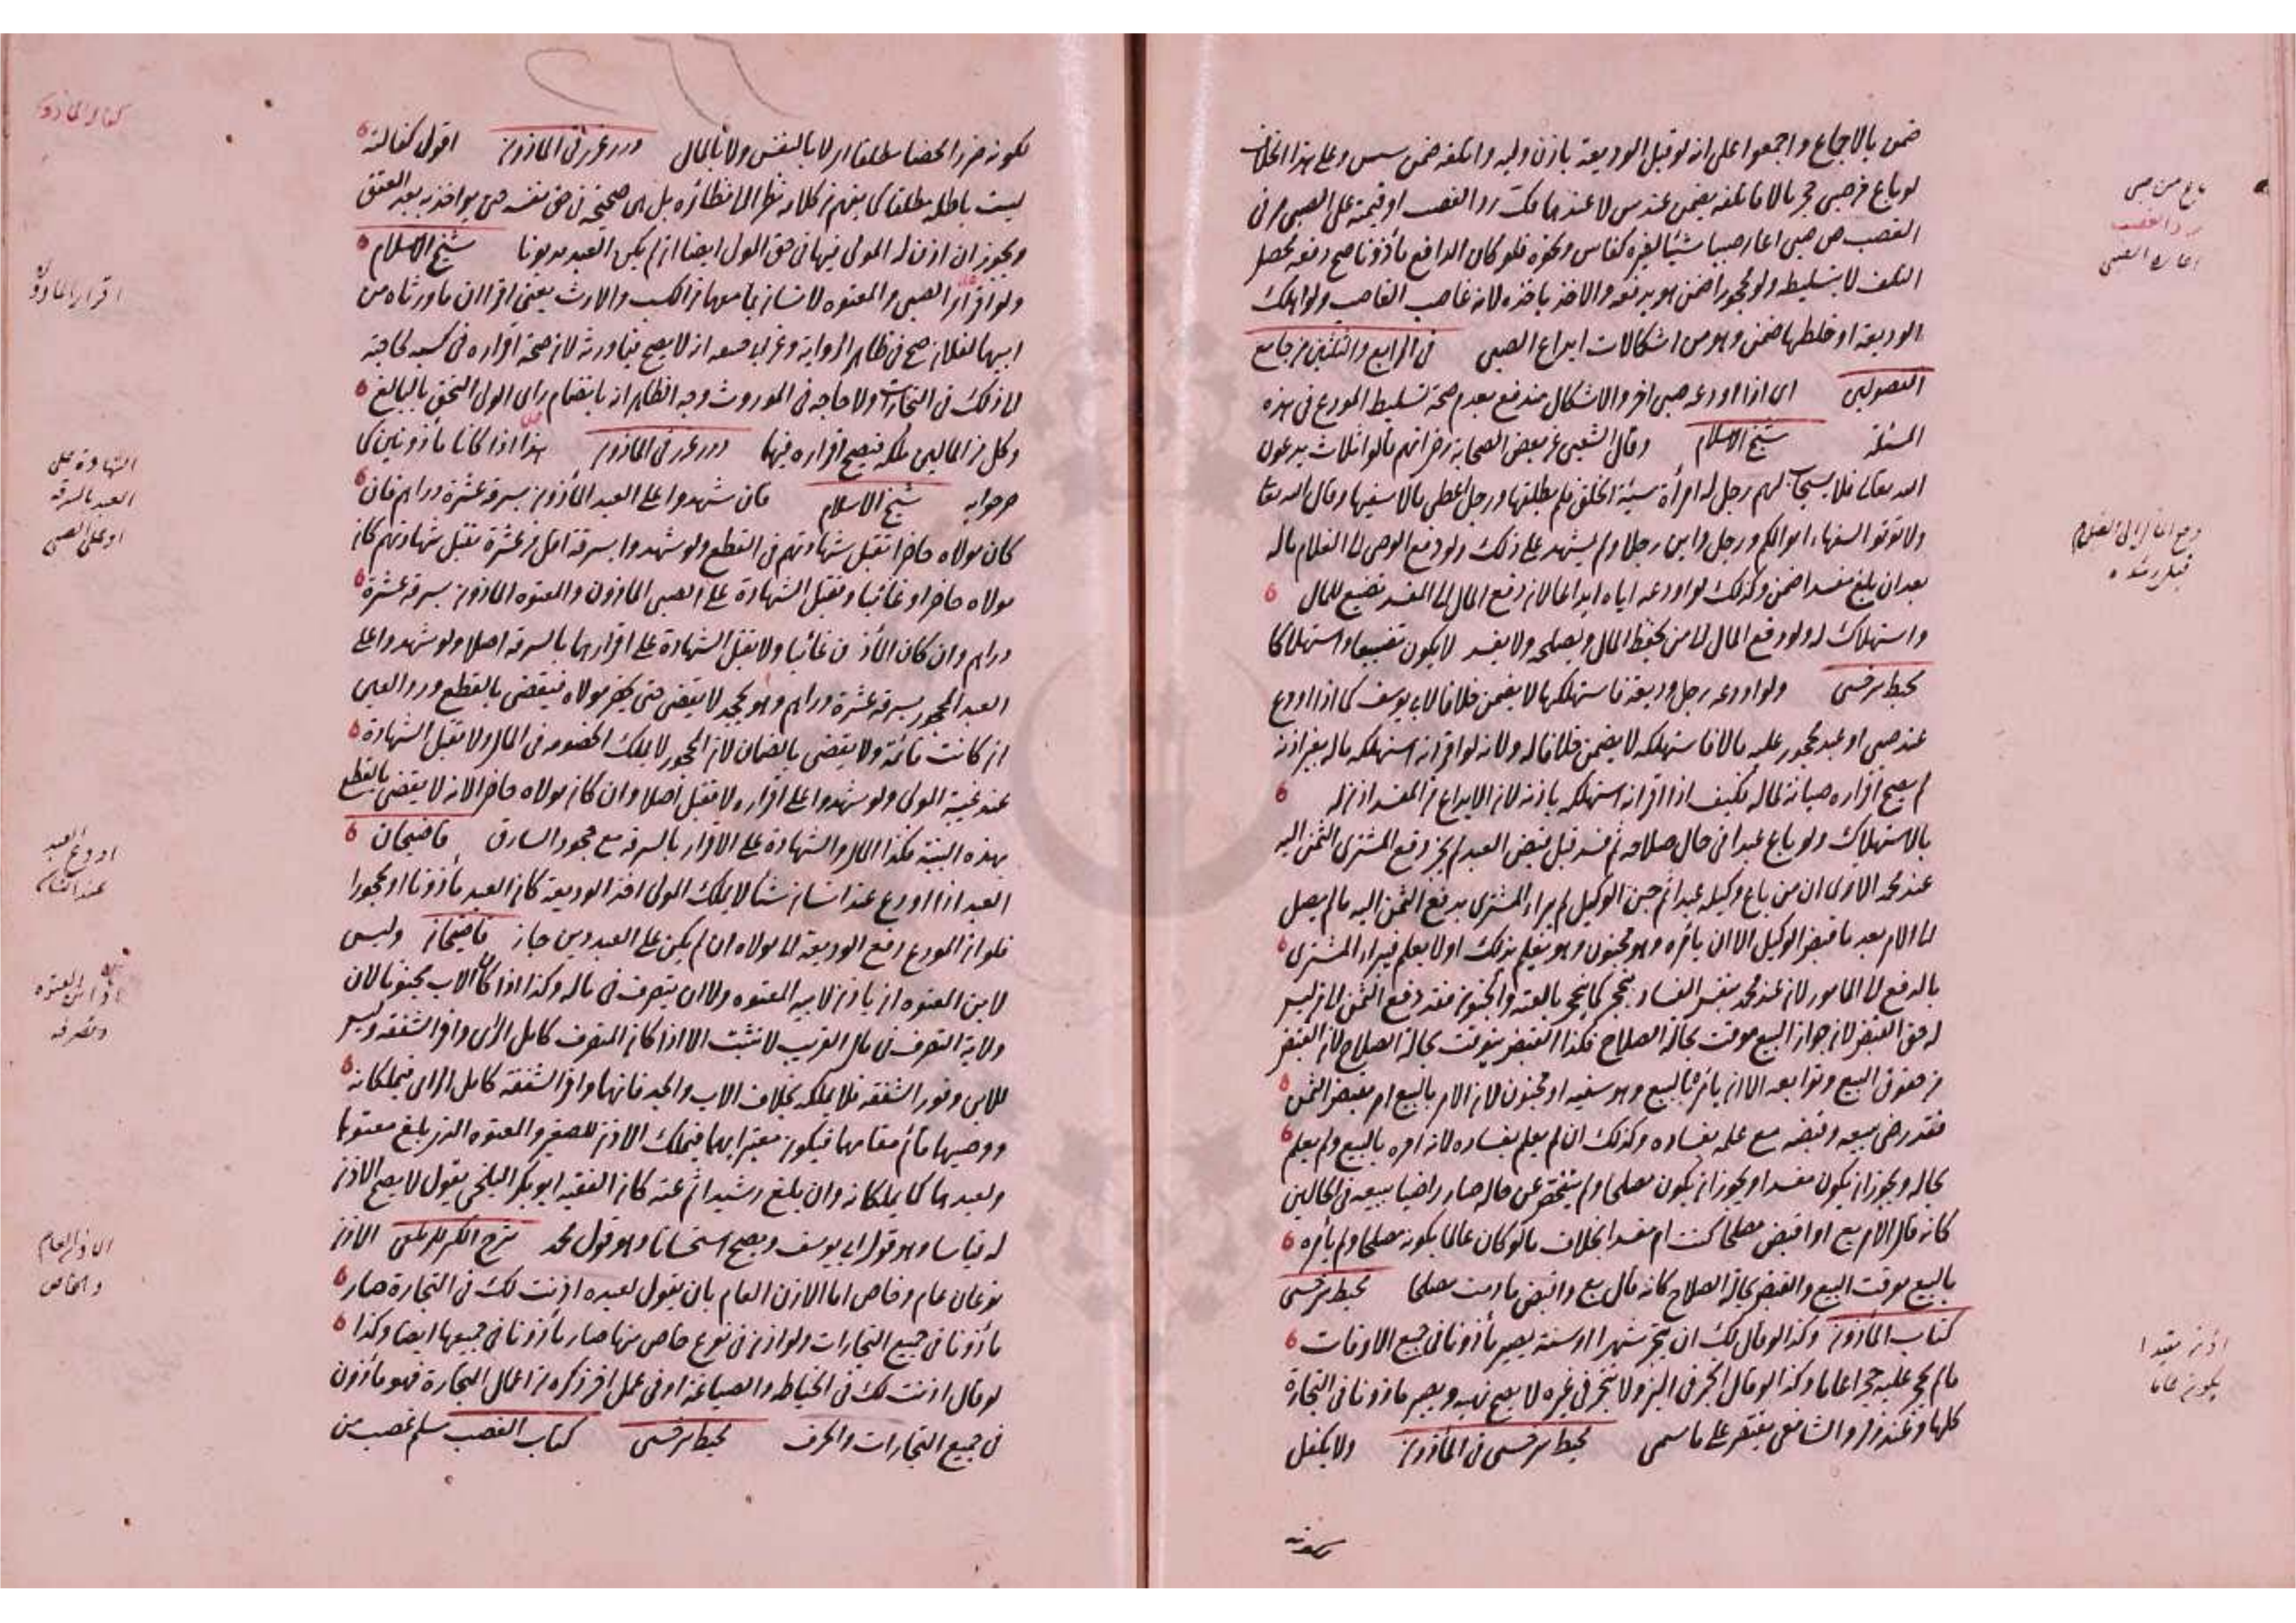 ضمن بالاجماع واجمعوا على انه لو قبل الوديعة باذن وليه واتلفه ضمن سس وعلى هذا الخلاف
لو باع من صبي حجر مالا فاتلفه يضمن عند س لا عندهما فكت رد الغصب او قيمته على الصبي من في
الغصب ص صبي اعار صبيا شيئا لغيره كفاس ونحوه فلو كان الدافع مأذونا صح دفعه فحصل
التلف لا بتسليطه ولو محجورا ضمن هو بدفعه والآخذ بأخذه لانه غاصب الغاصب ولو اهلك
الوديعة او خلطها ضمن وهو من اشكالات ايداع الصبي في الرابع والثلثين من جامع
الفصولين اى اذا اودعه صبي آخر والاشكال مندفع بعدم صحة تسليط المودع في هذه
المسئلة شيخ الاسلام وقال الشعبي عن بعض الصحابة رضى انهم قالوا ثلاث يدعون
الله تعالى فلا يستجاب لهم رجل له امرأة سيئة الخلق فلم يطلقها ورجل اعطى مالا سفيها وقال الله تعالى
ولا تؤتوا السفهاء اموالكم ورجل داين رجلا ولم يشهد على ذلك ولو دفع الوصي الى الغلام ماله
بعد ان بلغ مفسدا ضمن وكذلك لو اودعه اياه ايداعا لان دفع المال الى المفسد تضيع للمال
واستهلاك له ولو دفع المال الى من يحفظ المال ويصلحه ولا يفسد لا يكون تضييعا واستهلاكا
محيط سرخسي ولو اودعه رجل وديعة فاستهلكها لا يضمن خلافا لابى يوسف كما اذا اودع
عند صبي او عبد محجور عليه مالا فاستهلكه لا يضمن خلافا له ولانه لو اقر انه استهلكه ماله بغير اذنه
لم يصح اقراره صيانة لماله فكيف اذا اقر انه استهلكه باذنه لان الايداع من المفسد اذن له
بالاستهلاك ولو باع عبدا في حال صلاحه ثم فسد قبل قبض العبد لم يجز دفع المشترى الثمن اليه
عند محمد الا ترى ان من باع وكيله عبدا ثم جن الوكيل لم يبرأ المشترى بدفع الثمن اليه ما لم يصل
الى الآمر بعد ما قبض الوكيل الا ان يأمره وهو مجنون وهو يعلم بذلك او لا يعلم فيبرأ المشترى
بالدفع الى المأمور لان عند محمد بنفس الفساد ينحجر كما ينحجر بالعته والجنون فقد دفع الثمن الى من ليس
له حق القبض لان جواز البيع موقت بحالة الصلاح فكذا القبض يتوقت بحالة الصلاح لان القبض
من حقوق البيع وتوابعه الا ان يأمره بالبيع وهو سفيه او مجنون لان الامر بالبيع امر بقبض الثمن
فقد رضى ببيعه وقبضه مع علمه بفساده وكذلك ان لم يعلم بفساده لانه امره بالبيع ولم يعلم
بحاله ويجوز ان يكون مفسدا ويجوز ان يكون مصلحا ولم يتفحص عن حاله صار راضيا ببيعه في الحالين
كانه قال الآمر بع او اقبض مصلحا كنت ام مفسدا بخلاف ما لو كان عالما بكونه مصلحا ولم يأمره
بالبيع موقت البيع والقبض بحالة الصلاح كانه قال بع واقبض ما دمت مصلحا محيط سرخسي
كتاب المأذون وكذا لو قال لك ان تتجر شهرا او سنة يصير مأذونا في جميع الاوقات
ما لم يحجر عليه حجرا عاما وكذا لو قال اتجر في البز ولا تتجر في غيره لا يصح نهيه ويصير مأذونا في التجارة
كلها وعند زفر والشافعي يقتصر على ما سمى محيط سرخسي في المأذون ولا يكفل
بكونه
باع من صبي
رد الغصب
اعارة الصبي
دفع المال الى الغلام
قبل رشده
اذن مقيدا
يكون عاما
لكونه ضررا محضا مطلقا اى لا بالنفس ولا بالمال درر غرر في المأذون اقول كفالته
ليست باطلة مطلقا كما يفهم من كلامه نظرا الى نظائره بل هى صحيحة في حق نفسه حتى يؤاخذ به بعد العتق
ويجوز ان اذن له المولى فيها في حق المولى ايضا ان لم يكن العبد مديونا شيخ الاسلام
ولو اقر الصبي والمعتوه لانسان بما معهما من الكسب والارث يعنى اقرا ان ما ورثاه من
ابيهما لفلان صح في ظاهر الرواية وعن ابى حنيفة انه لا يصح فيما ورثه لان صحة اقراره في كسبه لحاجته
الى ذلك في التجارات ولا حاجة في الموروث وجه الظاهر انه بانضمام رأى الولى التحق بالبالغ
وكل من المالين ملكه فيصح اقراره فيهما درر غرر في المأذون هذا اذا كانا مأذونين كما
صرحوا به شيخ الاسلام فان شهدوا على العبد المأذون بسرقة عشرة دراهم فان
كان مولاه حاضرا تقبل شهادتهم في القطع ولو شهدوا بسرقة اقل من عشرة تقبل شهادتهم كان
مولاه حاضرا او غائبا وتقبل الشهادة على الصبي المأذون والمعتوه المأذون بسرقة عشرة
دراهم وان كان الآذن غائبا ولا يقبل الشهادة على اقرارهما بالسرقة اصلا ولو شهدوا على
العبد المحجور بسرقة عشرة دراهم وهو يجحد لا يقضى حتى يحضر مولاه فيقضى بالقطع ورد العين
ان كانت قائمة ولا يقضى بالضمان لان المحجور لا يملك الخصومة في المال ولا تقبل الشهادة
عند غيبة المولى ولو شهدوا على اقراره لا تقبل اصلا وان كان مولاه حاضرا لانه لا يقضى بالقطع
بهذه البينة فكذا المال والشهادة على الاقرار بالسرقة مع جحود السارق قاضيخان
العبد اذا اودع عند انسان شيئا لا يملك المولى اخذ الوديعة كان العبد مأذونا او محجورا
فلو ان المودع دفع الوديعة الى مولاه ان لم يكن على العبد دين جاز قاضيخان وليس
لابن المعتوه ان يأذن لابيه المعتوه ولا ان يتصرف في ماله وكذا اذا كان الاب مجنونا لان
ولاية التصرف في مال القريب لا تثبت الا اذا كان المتصرف كامل الرأى وافر الشفقة وليس
للابن وفور الشفقة فلا يملكه بخلاف الاب والجد فانهما وافر الشفقة كامل الرأى فيملكانه
ووصيهما قائم مقامهما فيكون معتبرا بهما فيملك الاذن للصغير والمعتوه الذى بلغ معتوها
ولعبدهما كما يملكانه وان بلغ رشيدا ثم عته كان الفقيه ابو بكر البلخى يقول لا يصح الاذن
له قياسا وهو قول ابى يوسف ويصح استحسانا وهو قول محمد شرح الكنز للزيلعى الاذن
نوعان عام وخاص اما الاذن العام بان يقول لعبده اذنت لك في التجارة صار
مأذونا في جميع التجارات ولو اذن في نوع خاص منها صار مأذونا في جميعها ايضا وكذا
لو قال اذنت لك في الخياطة والصياغة او في عمل آخر ذكره من اعمال التجارة فهو مأذون
في جميع التجارات والحرف محيط سرخسي كتاب الغصب مسلم غصب من
كفالة المأذون
اقرار المأذون
الشهادة على
العبد بالسرقة
او على الصبي
اودع العبد
عند انسان
اذن ابن المعتوه
وتصرفه
الاذن العام
والخاص